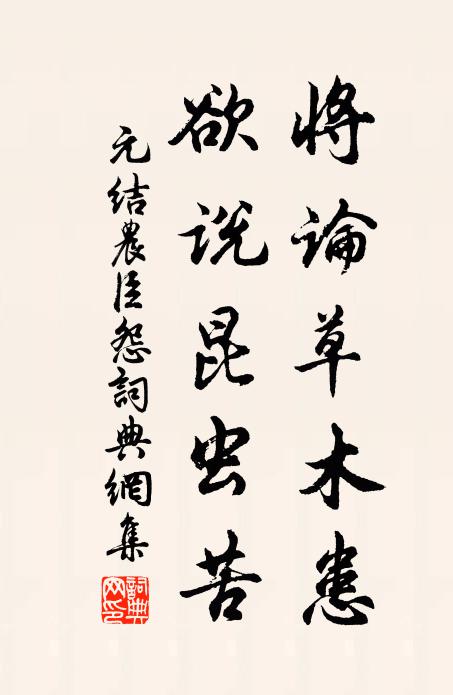 將論草木患
欲说昆虫苦
元结農臣怨詞典網集
詞典網印